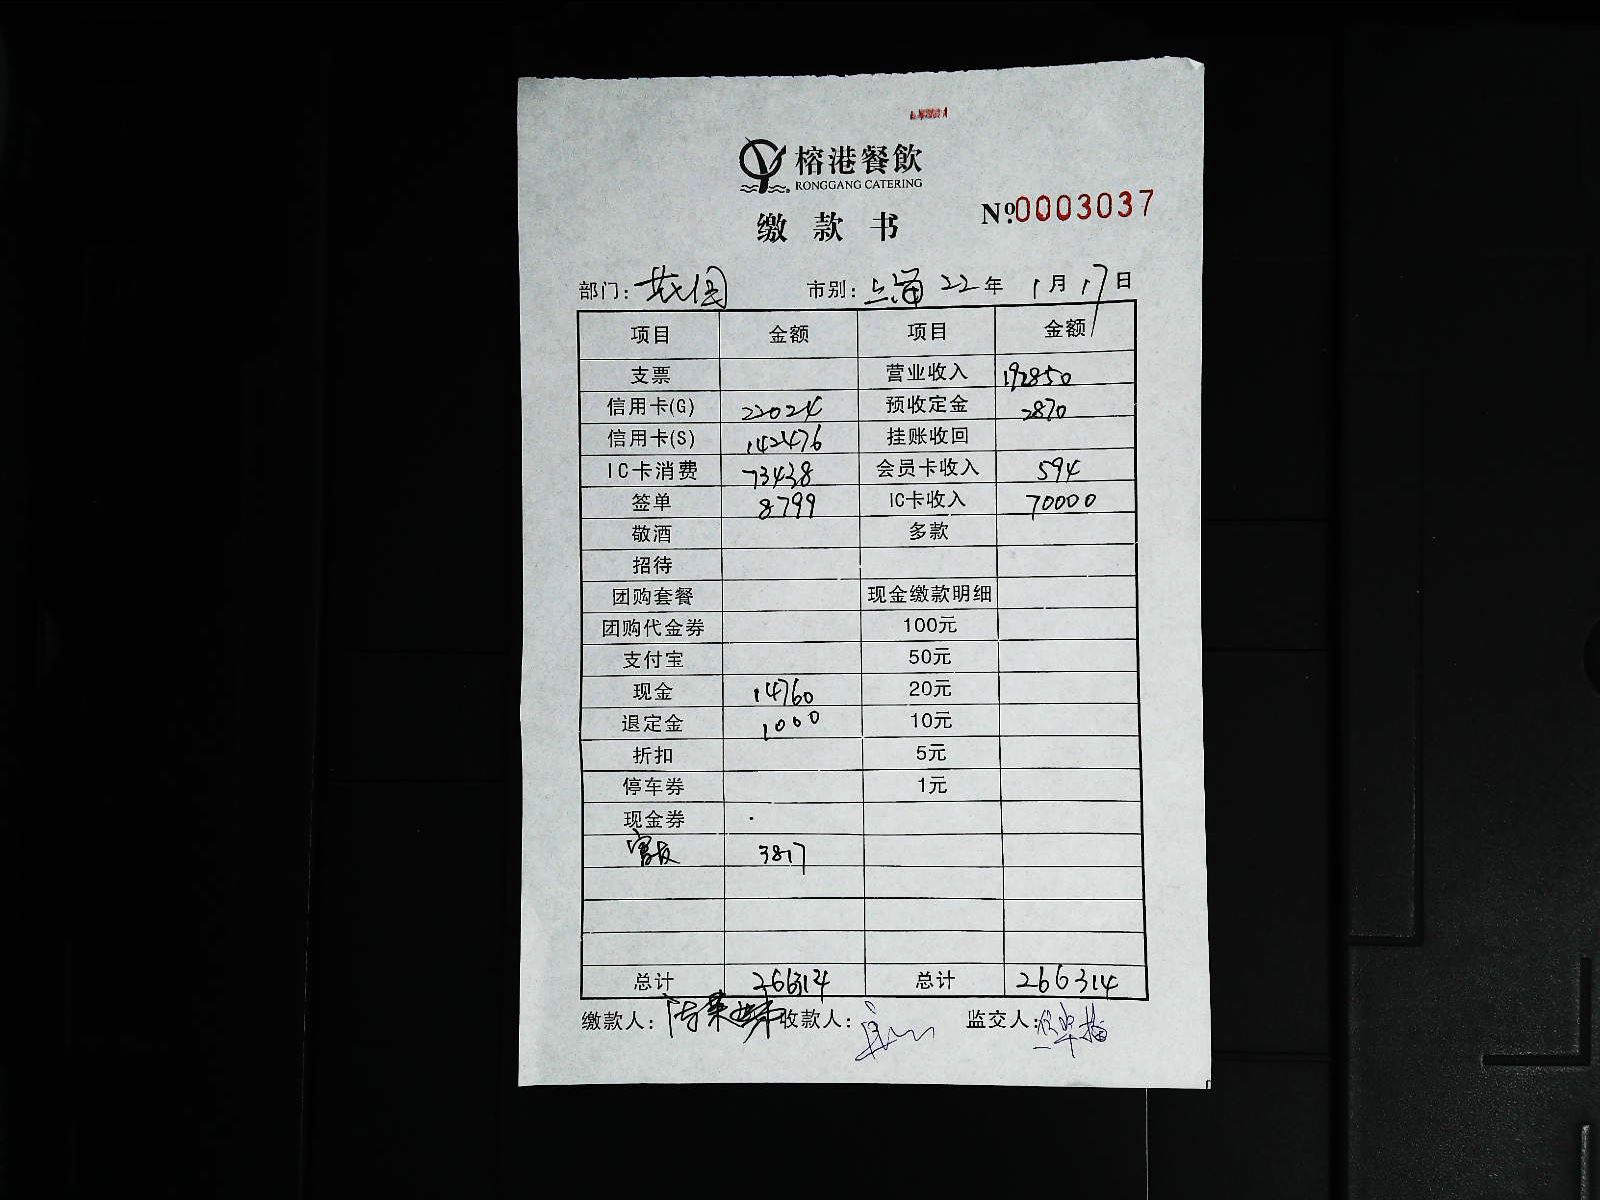 榕港餐飲
RONGGANG CATERING
缴款书
No.0003037
部门: 市别: 上海 22年 1月17日
项目 金额 项目 金额
支票 营业收入 192850
信用卡(G) 22024 预收定金 2870
信用卡(S) 142476 挂账收回
IC卡消费 73438 会员卡收入 594
签单 8799 IC卡收入 70000
敬酒 多款
招待
团购套餐 现金缴款明细
团购代金券 100元
支付宝 50元
现金 14760 20元
退定金 1000 10元
折扣 5元
停车券 1元
现金券
3817
总计 266314 总计 266314
缴款人: 收款人: 监交人: